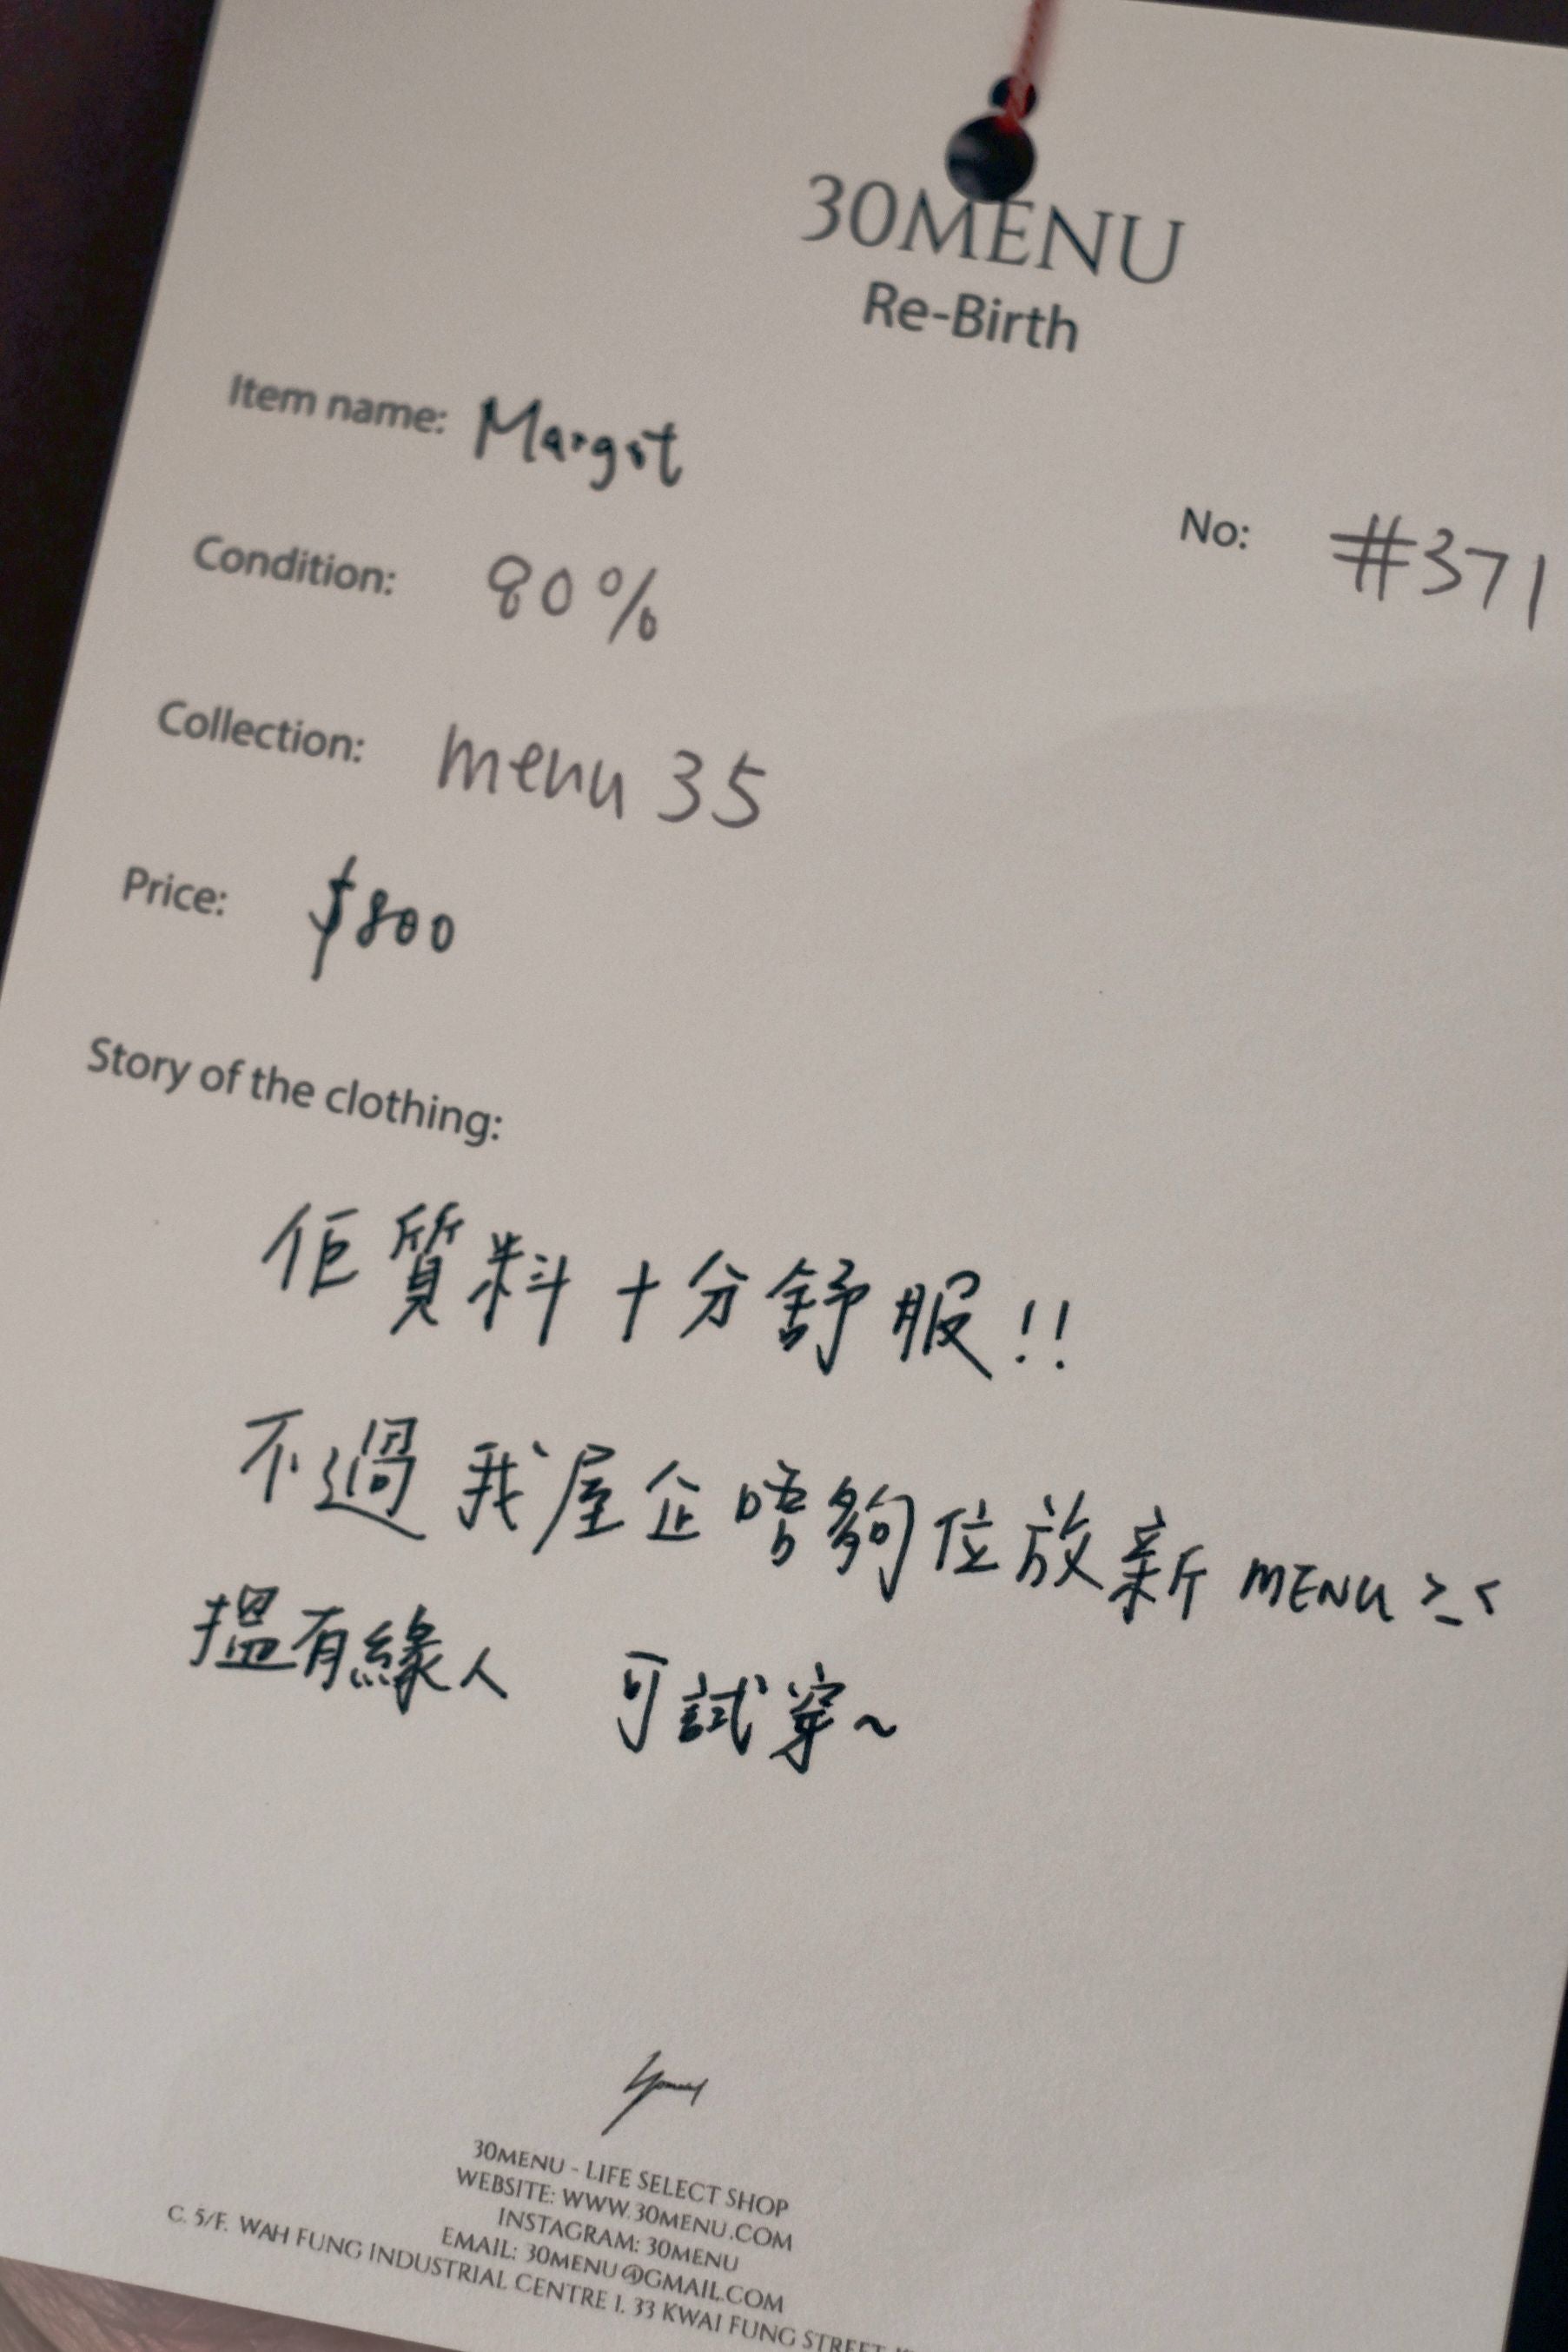 30MENU
Re-Birth
Item name: Margot
No: #371
Condition: 80%
Collection: menu 35
Price: $800
Story of the clothing:
佢質料十分舒服!!
不過我屋企唔夠位放新 MENU >_<
搵有緣人 可試穿~
30MENU - LIFE SELECT SHOP
WEBSITE: WWW.30MENU.COM
INSTAGRAM: 30MENU
EMAIL: 30MENU@GMAIL.COM
C. 5/F. WAH FUNG INDUSTRIAL CENTRE I. 33 KWAI FUNG STREET